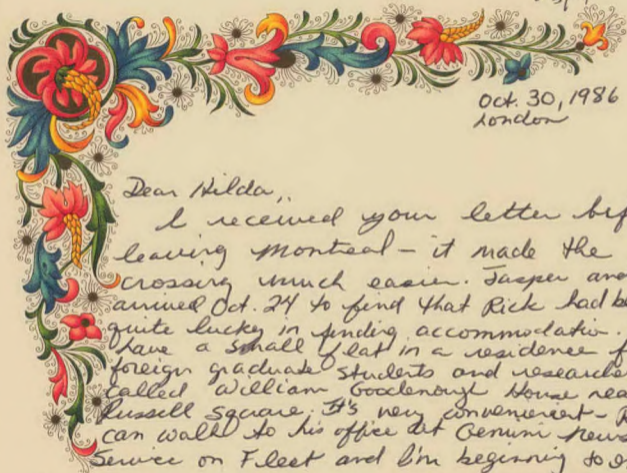 Oct. 30, 1986
London
Dear Hilda,
I received your letter bef
leaving Montreal - it made the
crossing much easier. Jasper and
arrived Oct. 24 to find that Rick had be
quite lucky in finding accommodation.
have a small flat in a residence f
foreign graduate students and researche
called William Goodenough House nea
Russell Square. It's very convenient - R
can walk to his office at Gemini News
Service on Fleet and I'm beginning to e